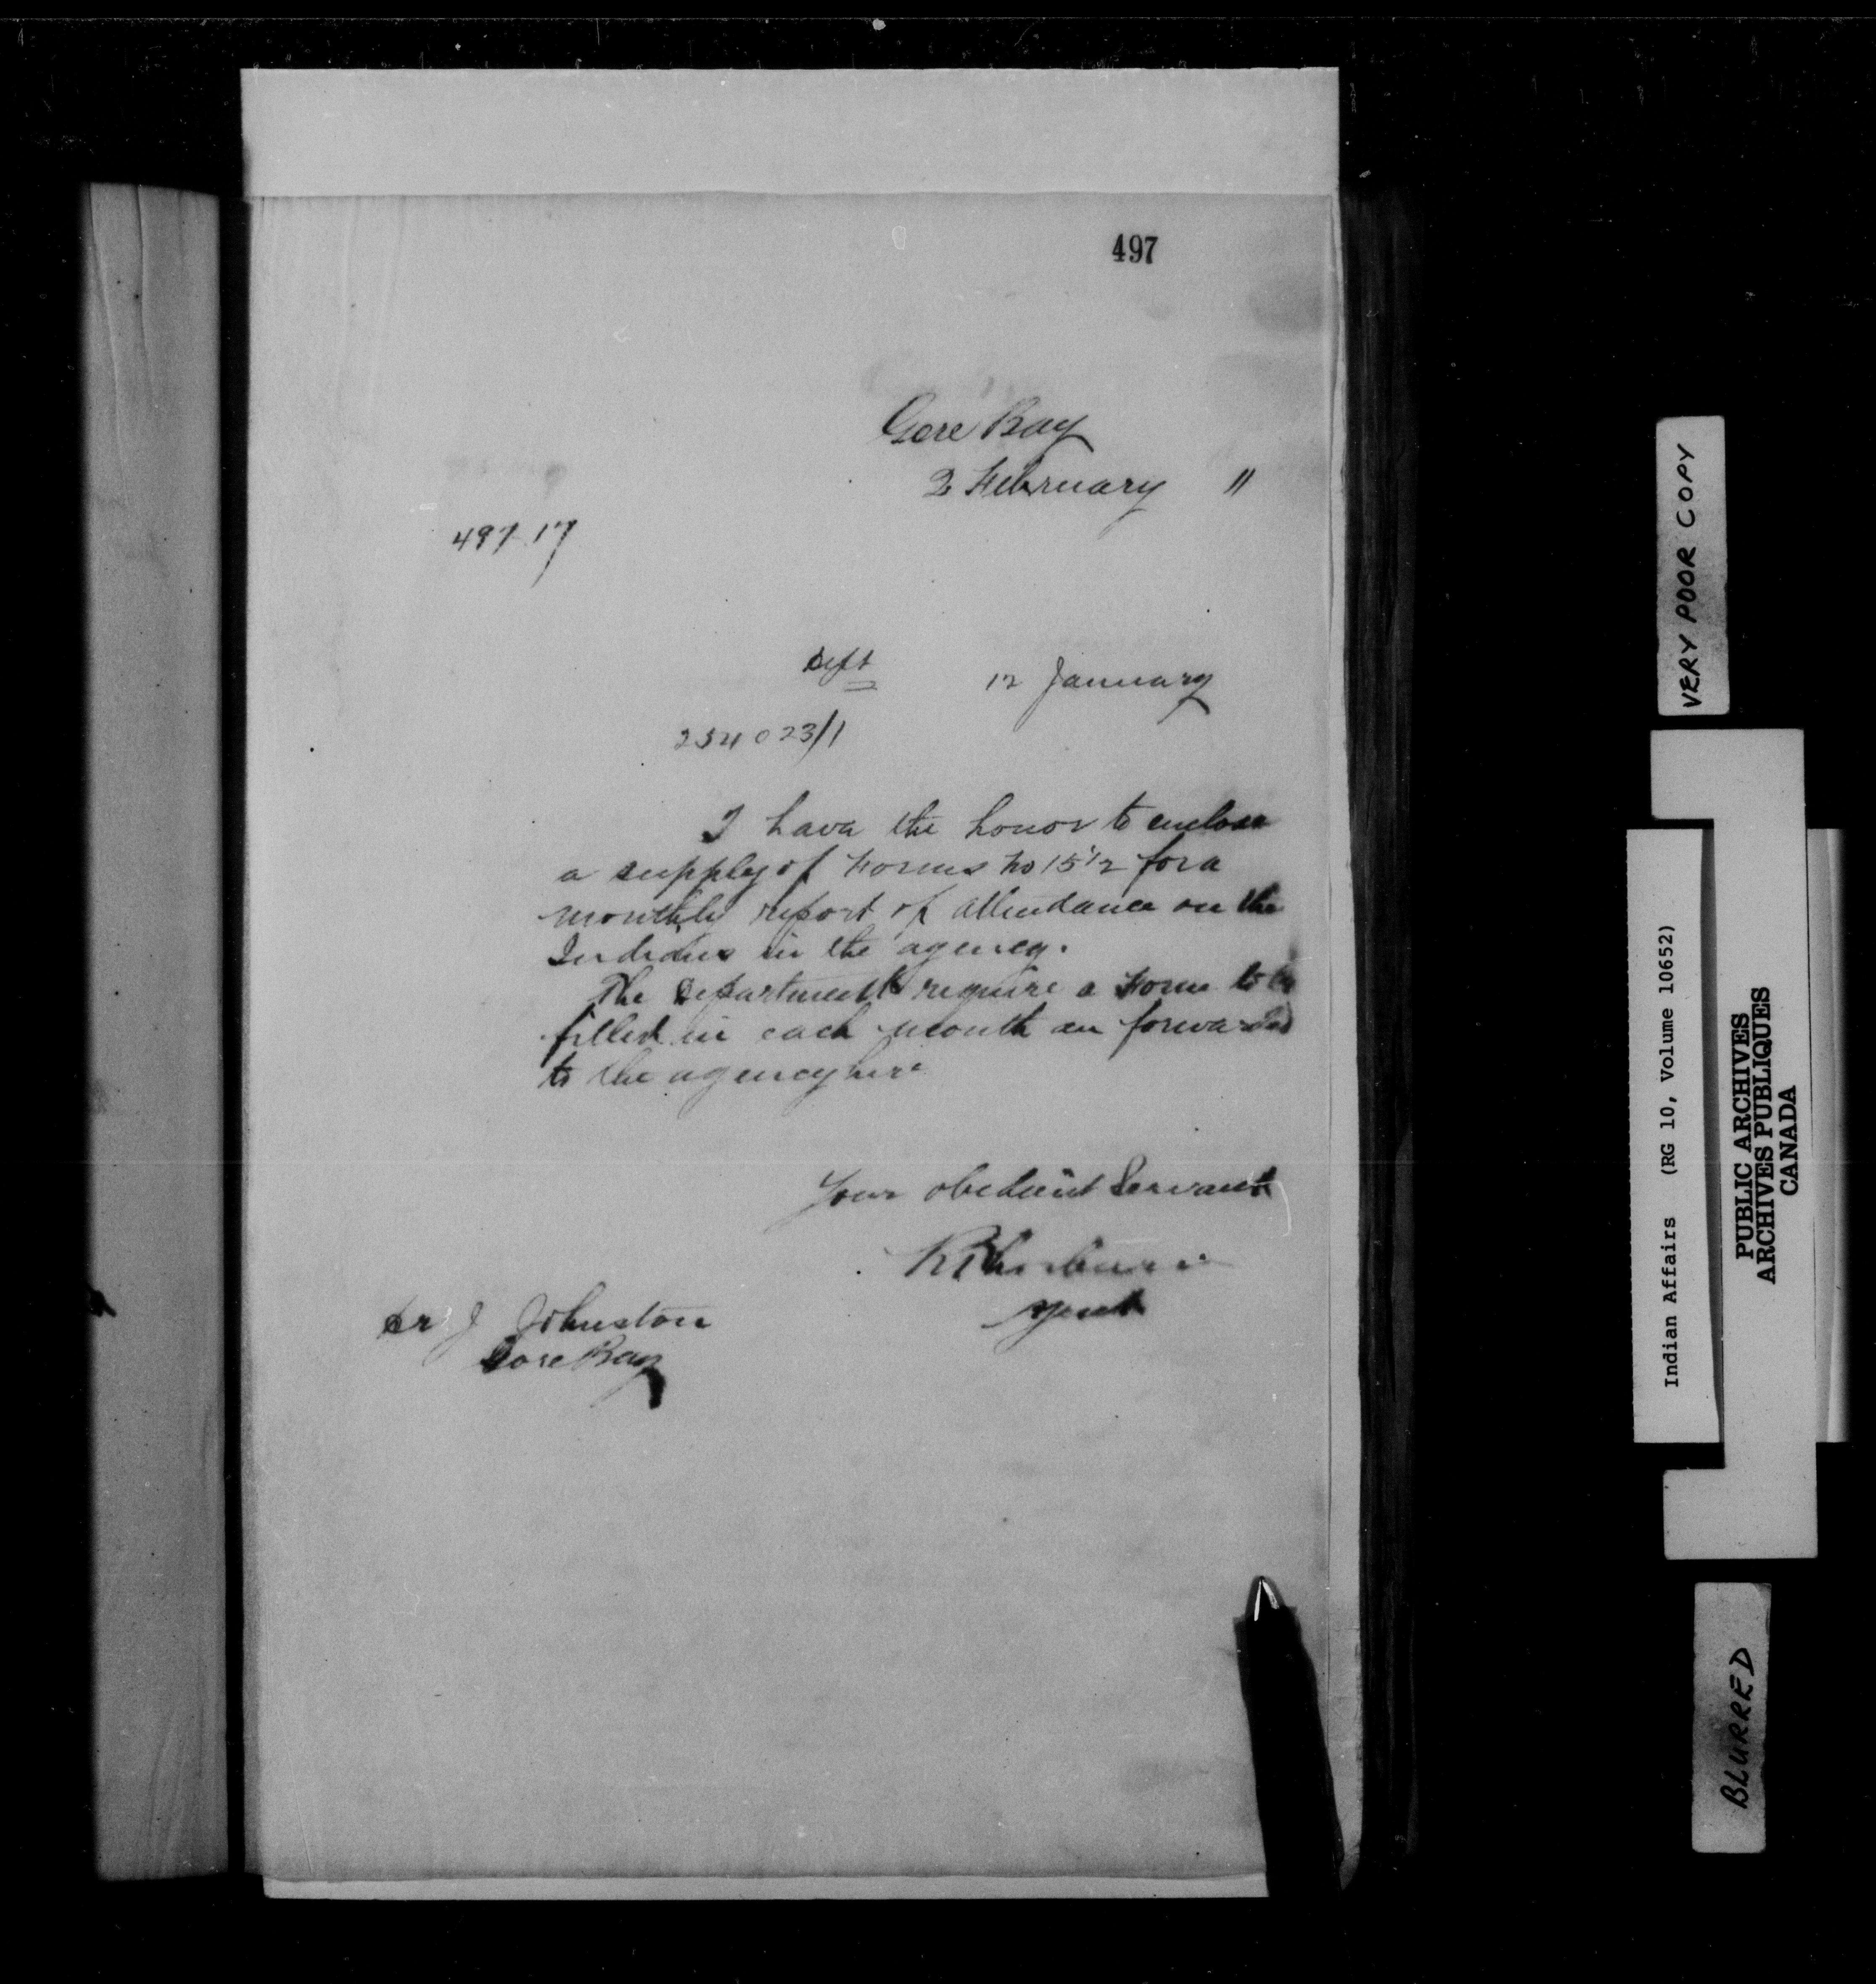 497
Gore Bay
2 February 11
497 17
Dept 12 January
254023/1
I have the honor to enclose
a supply of Forms No 15 1/2 for a
monthly report of attendance on the
Indians in the agency.
The Department require a Form to be
filled in each month an forwarded
to the agency here
Your obedient Servant
Agent
Dr J Johnston
Gore Bay
VERY POOR COPY
Indian Affairs (RG 10, Volume 10652)
PUBLIC ARCHIVES
ARCHIVES PUBLIQUES
CANADA
BLURRED